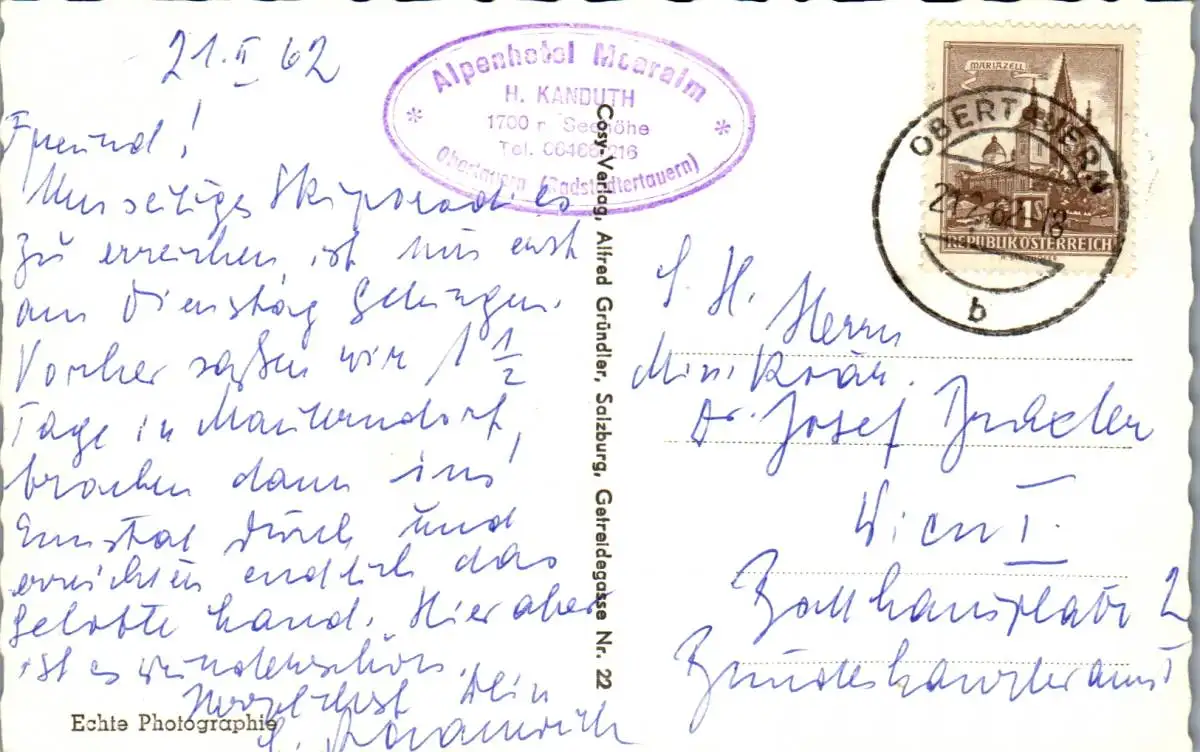 21.II 62
Freund!
zu erreichen, ist uns erst
am Dienstag gelungen.
Vorher saßen wir 1 1/2
Tage in Mauterndorf,
brachen dann ins
Ennstal durch und
erreichten endlich das
gelobte Land. Hier aber
ist es wunderschön.
Herzlichst Dein
Echte Photographie
Alpenhotel
H. KANDUTH
1700 m Seehöhe
Tel. 06466/216
Obertauern (Radstädtertauern)
Cosy-Verlag, Alfred Gründler, Salzburg, Getreidegasse Nr. 22
MARIAZELL
1S
REPUBLIK ÖSTERREICH
OBERTAUERN
21.2.62-18
b
S. H. Herrn
Dr. Josef
Wien I.
Ballhausplatz 2
Bundeskanzleramt